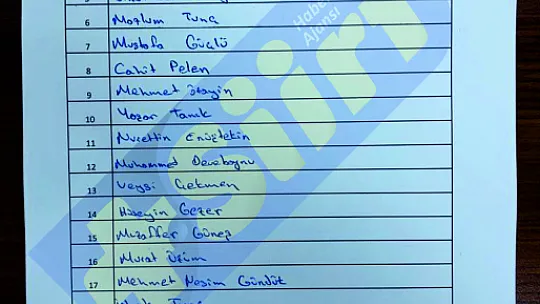 6 Mazlum Tunç
7 Mustafa Güçlü
8 Cahit Pelen
9 Mehmet
10 Yaşar Tanık
11 Nurettin
12 Muhammed Deveboynu
13 Veysi Çetmen
14 Hüseyin Gezer
15 Muzaffer Güneş
16 Murat Üzüm
17 Mehmet Nesim Gündük
Haber
Ajansı